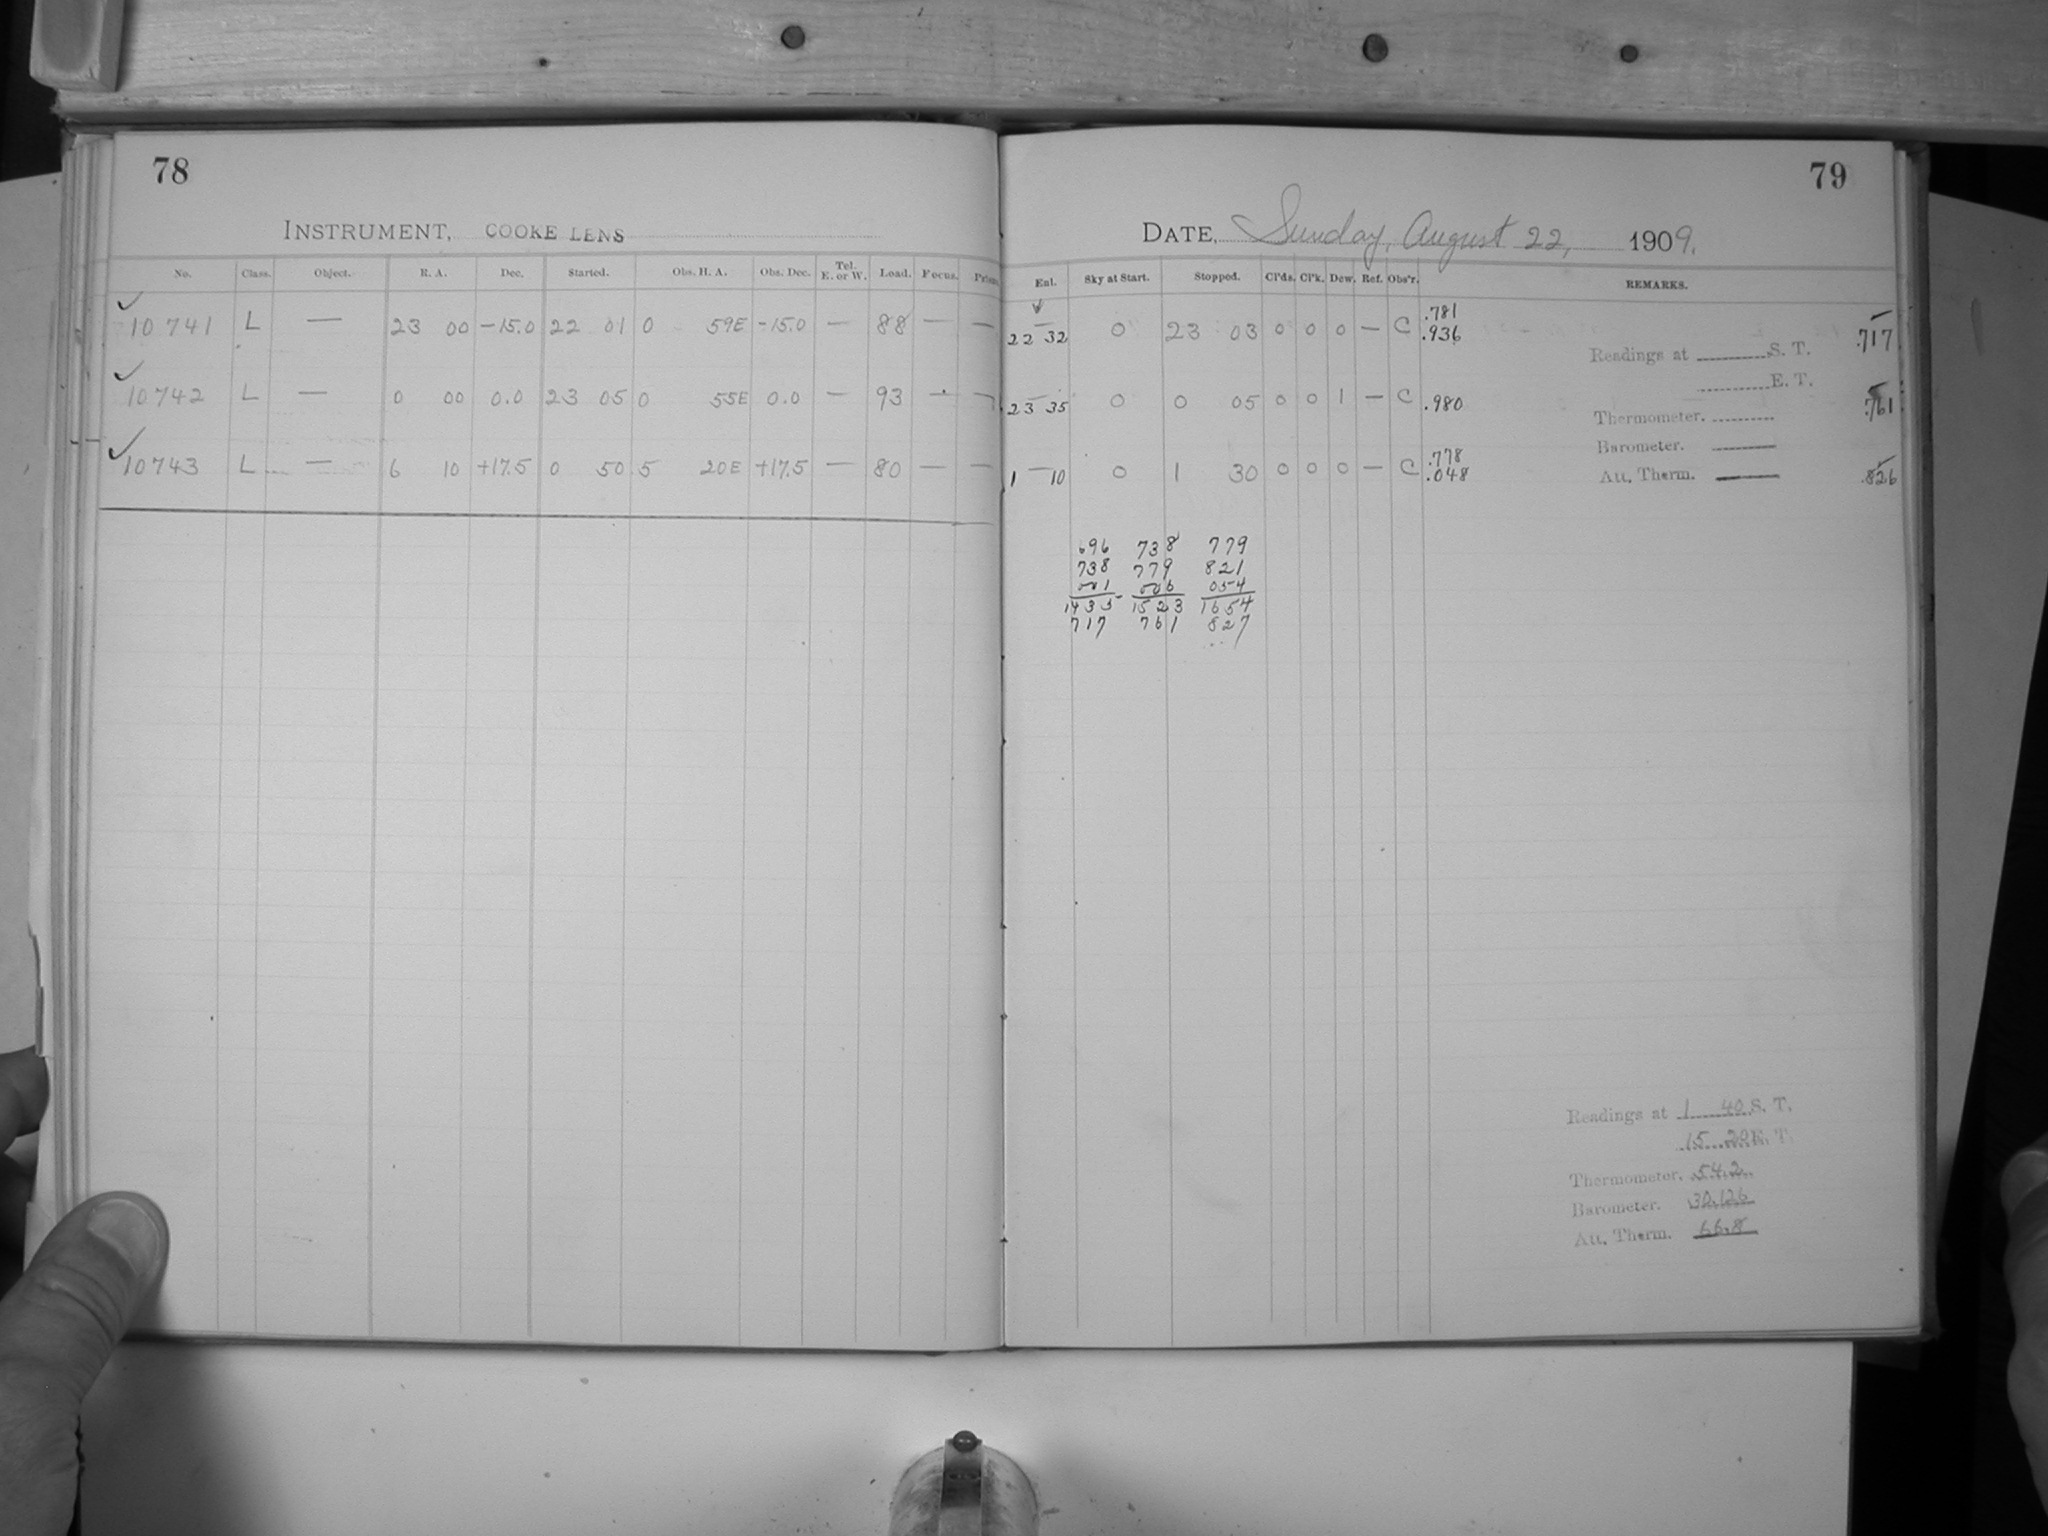 78
INSTRUMENT, COOKE LENS
No. Class. Object. R. A. Dec. Started. Obs. H. A. Obs. Dec. Tel. E. or W. Load. Focus. Prism.
10741 L — 23 00 -15.0 22 01 0 59E -15.0 — 88 — —
10742 L — 0 00 0.0 23 05 0 55E 0.0 — 93 — —
10743 L — 6 10 +17.5 0 50 5 20E +17.5 — 80 — —
79
DATE, Sunday, August 22, 1909.
Sky at Start. Stopped. Cl'ds. Cl'k. Dew. Ref. Obs'r. REMARKS.
22 32 0 23 03 0 0 0 — C .781 .717
.936
Readings at S. T.
E. T.
23 35 0 0 05 0 0 1 — C .980 .761
Thermometer.
Barometer.
1 10 0 1 30 0 0 0 — C .778 .826
.048
Att. Therm.
696 738 779
738 779 821
054
1435 1523 1654
717 761 827
Readings at 1 40 S. T.
15 20 E. T.
Thermometer. 54.2
Barometer. 30.126
Att. Therm. 66.8